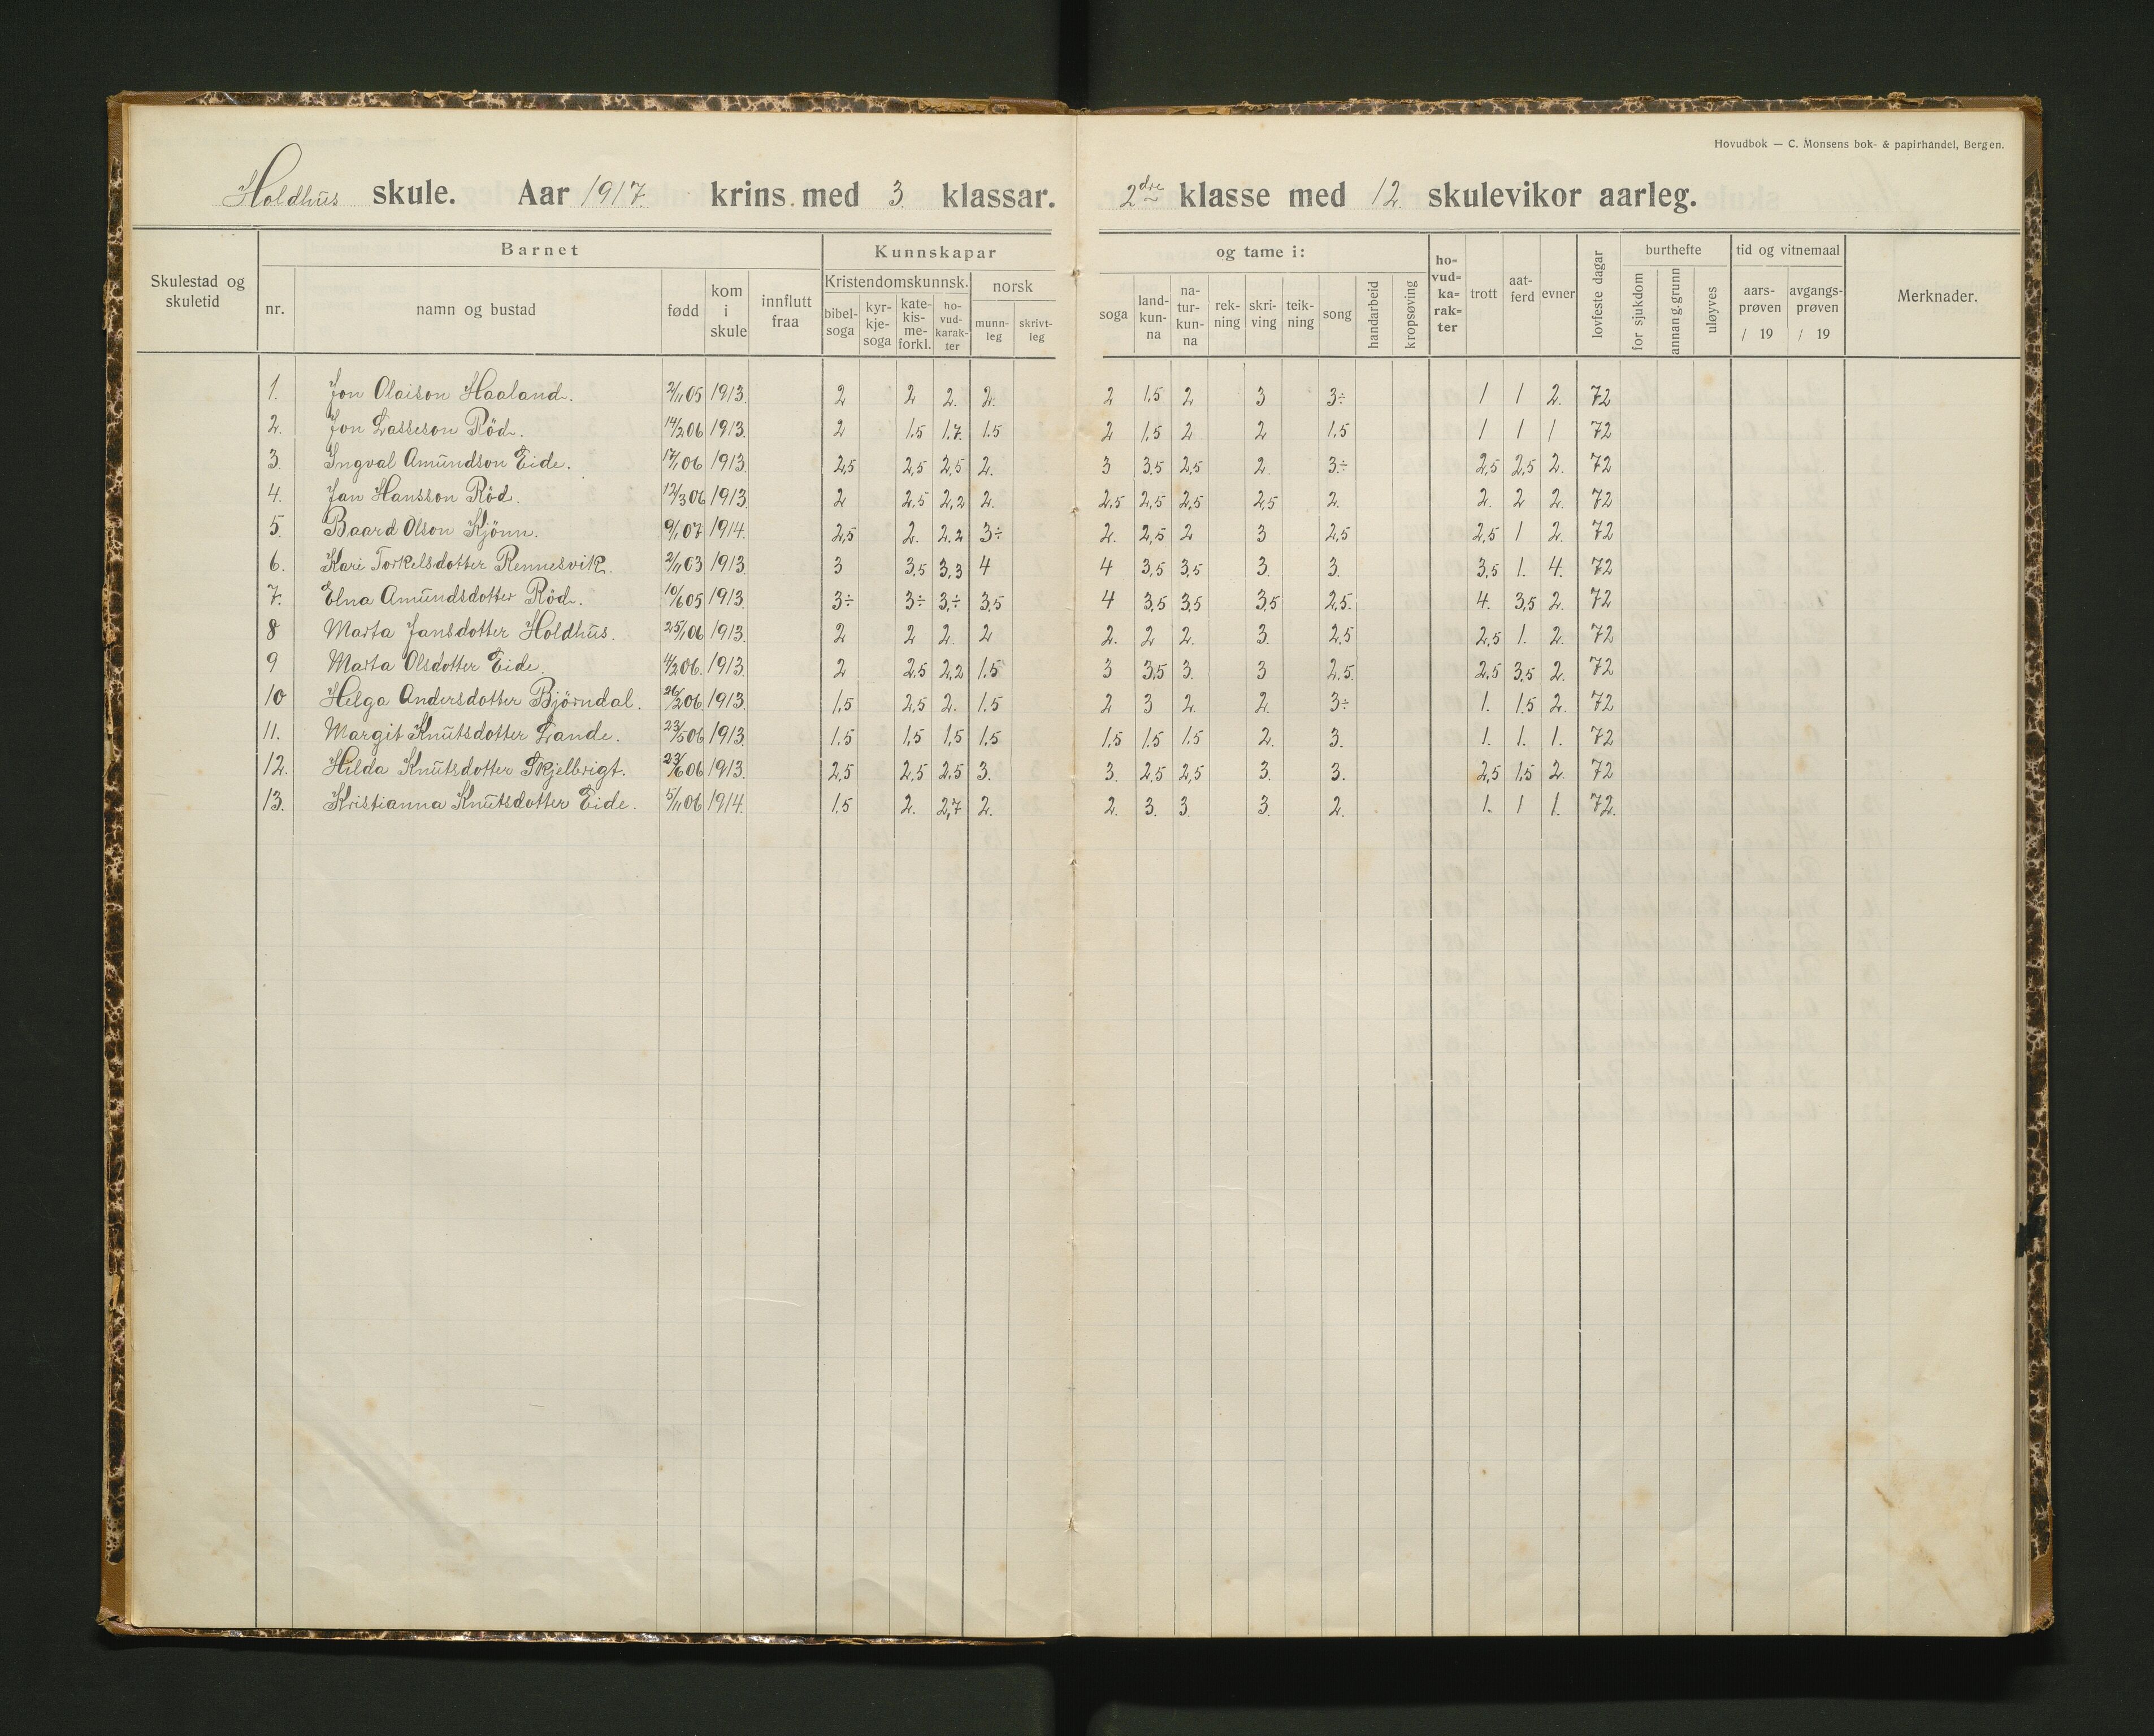 Hovudbok — C. Monsens bok- & papirhandel, Bergen.
Holdhus skule. Aar 1917. krins med 3 klassar. 2dre klasse med 12. skulevikor aarleg.
Barnet Kunnskapar og tame i: burthefte tid og vitnemaal
Skulestad og skuletid nr. namn og bustad fødd kom i skule innflutt fraa Kristendomskunnsk. bibel-soga kyr-kje-soga kate-kis-me-forkl. ho-vud-karak-ter norsk munn-leg skrivt-leg soga land-kun-na na-tur-kun-na rek-ning skri-ving teik-ning song handarbeid kropsøving ho-vud-ka-rak-ter trott aat-ferd evner lovfeste dagar for sjukdom annan g. grunn uløyves aars-prøven / 19 avgangs-prøven / 19 Merknader.
1. Jon Olaison Haaland. 2/11 05 1913. 2 2 2. 2. 2 1,5 2 3 3÷ 1 1 2. 72
2. Jon Lasseson Röd. 14/2 06 1913. 2 1.5 1.7. 1.5 2 1,5 2 2 1.5 1 1 1 72
3. Ingval Amundson Eide. 17/1 06 1913. 2,5 2,5 2,5 2. 3 3,5 2,5 2. 3÷ 2,5 2,5 2. 72
4. Jan Hansson Röd. 12/3 06 1913. 2 2,5 2,2 2. 2,5 2,5 2,5 2,5 2. 2. 2 2. 72
5. Baard Olson Kjönn. 9/1 07 1914. 2,5 2. 2.2 3÷ 2. 2,5 2 3 2,5 2,5 1 2. 72
6. Kari Torkelsdotter Rennesvik. 2/11 03 1913. 3 3,5 3,3 4 4 3,5 3,5 3. 3. 3,5 1. 4. 72
7. Elna Amundsdotter Röd. 10/6 05 1913. 3÷ 3÷ 3,÷ 3,5 4 3,5 3,5 3,5 2,5. 4. 3,5 2. 72
8 Marta Jansdotter Holdhus. 25/1 06 1913. 2 2 2. 2 2. 2 2. 3. 2,5 2,5 1. 2. 72
9 Marta Olsdotter Eide. 4/2 06. 1913. 2 2,5 2,2 1.5 3 3,5 3. 3 2,5. 2,5 3,5 2. 72
10 Helga Andersdotter Björndal. 26/2 06. 1913. 1,5 2,5 2. 1.5 2 3 2. 2. 3÷ 1. 1.5 2. 72
11. Margit Knutsdotter Lande. 23/5 06 1913. 1.5 1,5 1,5 1,5 1,5 1.5 1.5 2. 3. 1. 1. 1. 72
12. Hilda Knutsdotter Skjelbrigt. 23/6 06 1913. 2,5 2,5 2,5 3. 3. 2,5 2,5 3. 3. 2,5 1.5 2. 72
13. Kristianna Knutsdotter Eide. 5/11 06 1914. 1.5 2. 2,7 2. 2. 3. 3. 3. 2. 1. 1 1. 72.